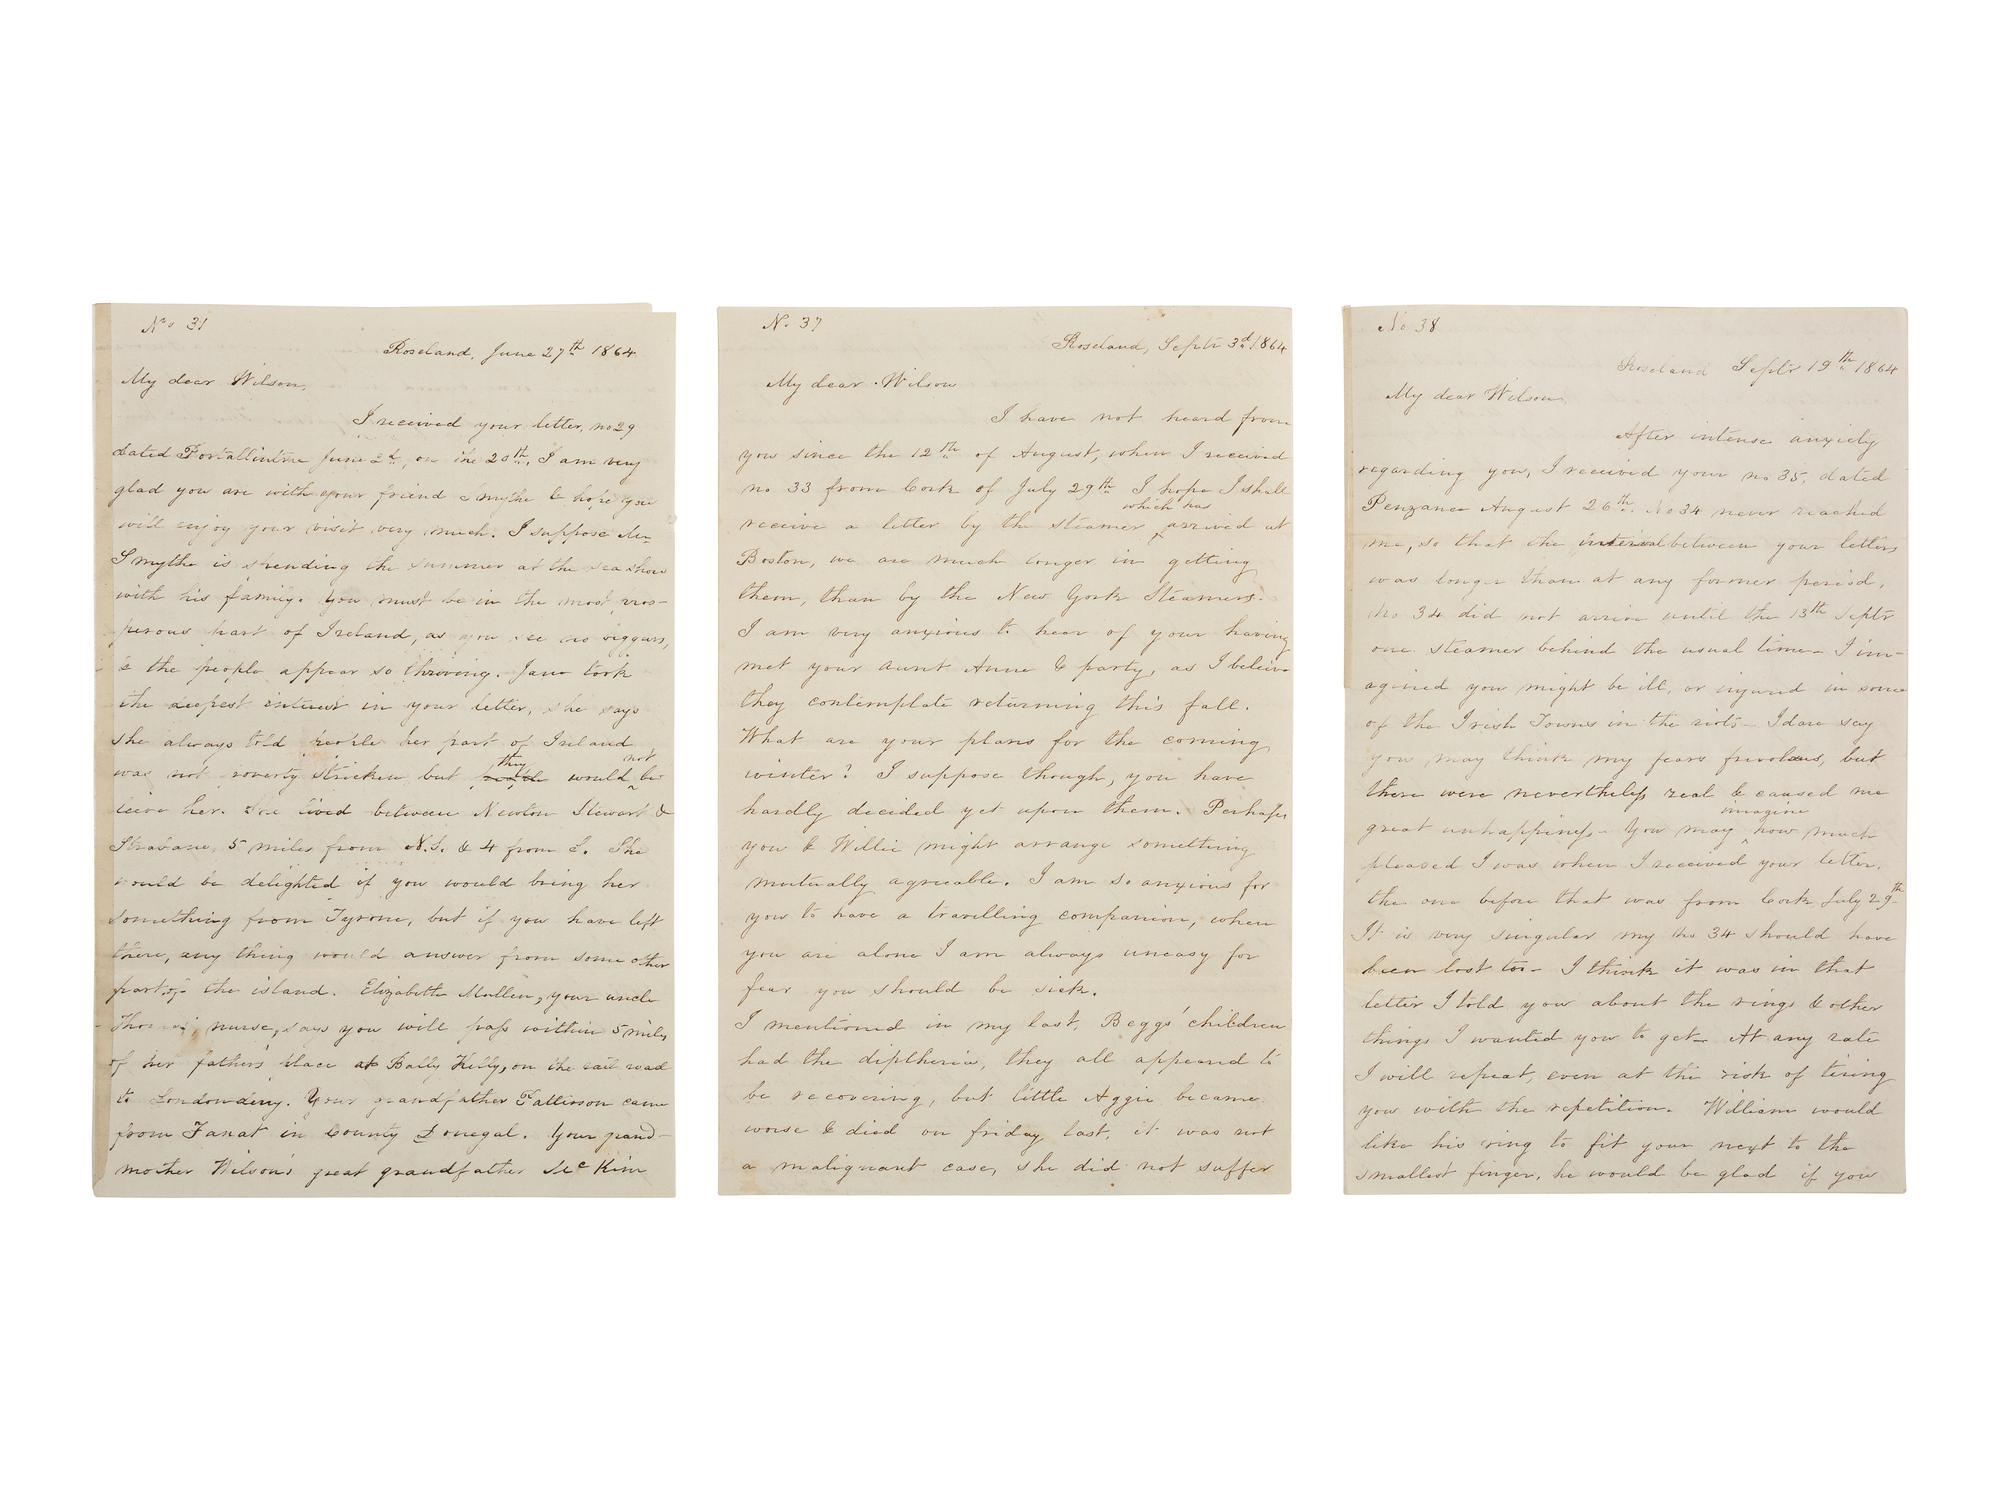 No 31
Roseland, June 27th 1864
My dear Wilson,
I received your letter, no 29
dated Portallintrae June 2d, on the 20th. I am very
glad you are with your friend Smythe & hope you
will enjoy your visit very much. I suppose Mr
Smythe is spending the summer at the sea shore
with his family. You must be in the most pros-
perous part of Ireland, as you see no beggars,
& the people appear so thriving. Jane took
the deepest interest in your letter, she says
she always told people her part of Ireland
not
they
was not poverty stricken but would be
leive her. She lived between Newton Stewart &
Strabane, 5 miles from N.S. & 4 from S. She
would be delighted if you would bring her
something from Tyrone, but if you have left
there, any thing would answer from some other
part of the island. Elizabeth Mullen, your uncle
Thomas' nurse, says you will pass within 5 miles
of her fathers' place at Bally Kelly, on the rail road
to Londonderry. Your grandfather Patterson came
from Fanat in County Donegal. Your grand-
mother Wilson's great grandfather McKim
No. 37
Roseland, Septr 3d 1864
My dear Wilson
I have not heard from
you since the 12th of August, when I received
no 33 from Cork of July 29th I hope I shall
which has
receive a letter by the steamer arrived at
Boston, we are much longer in getting
them, than by the New York Steamers.
I am very anxious to hear of your having
met your aunt Anne & party, as I beleive
they contemplate returning this fall.
What are your plans for the coming
winter? I suppose though, you have
hardly decided yet upon them. Perhaps
you & Willie might arrange something
mutually agreable. I am so anxious for
you to have a travelling companion, when
you are alone I am always uneasy for
fear you should be sick.
I mentioned in my last, Beggs' children
had the diptheria, they all appeared to
be recovering, but little Aggie became
worse & died on friday last, it was not
a malignant case, she did not suffer
No 38
Roseland Septr 19th 1864
My dear Wilson,
After intense anxiety
regarding you, I received your no 35, dated
Penzance August 26th. No 34 never reached
me, so that the interval between your letters
was longer than at any former period,
no 34 did not arrive until the 13th Septr
one steamer behind the usual time - I im-
agined you might be ill, or injured in some
of the Irish Towns in the riots - I dare say
you may think my fears frivolous, but
there were nevertheless real & caused me
imagine
great unhappiness - You may how much
pleased I was when I received your letter,
the one before that was from Cork July 29th
It is very singular my no 34 should have
been lost too - I think it was in that
letter I told you about the rings & other
things I wanted you to get - At any rate
I will repeat, even at the risk of tiring
you with the repetition. William would
like his ring to fit your next to the
smallest finger, he would be glad if you